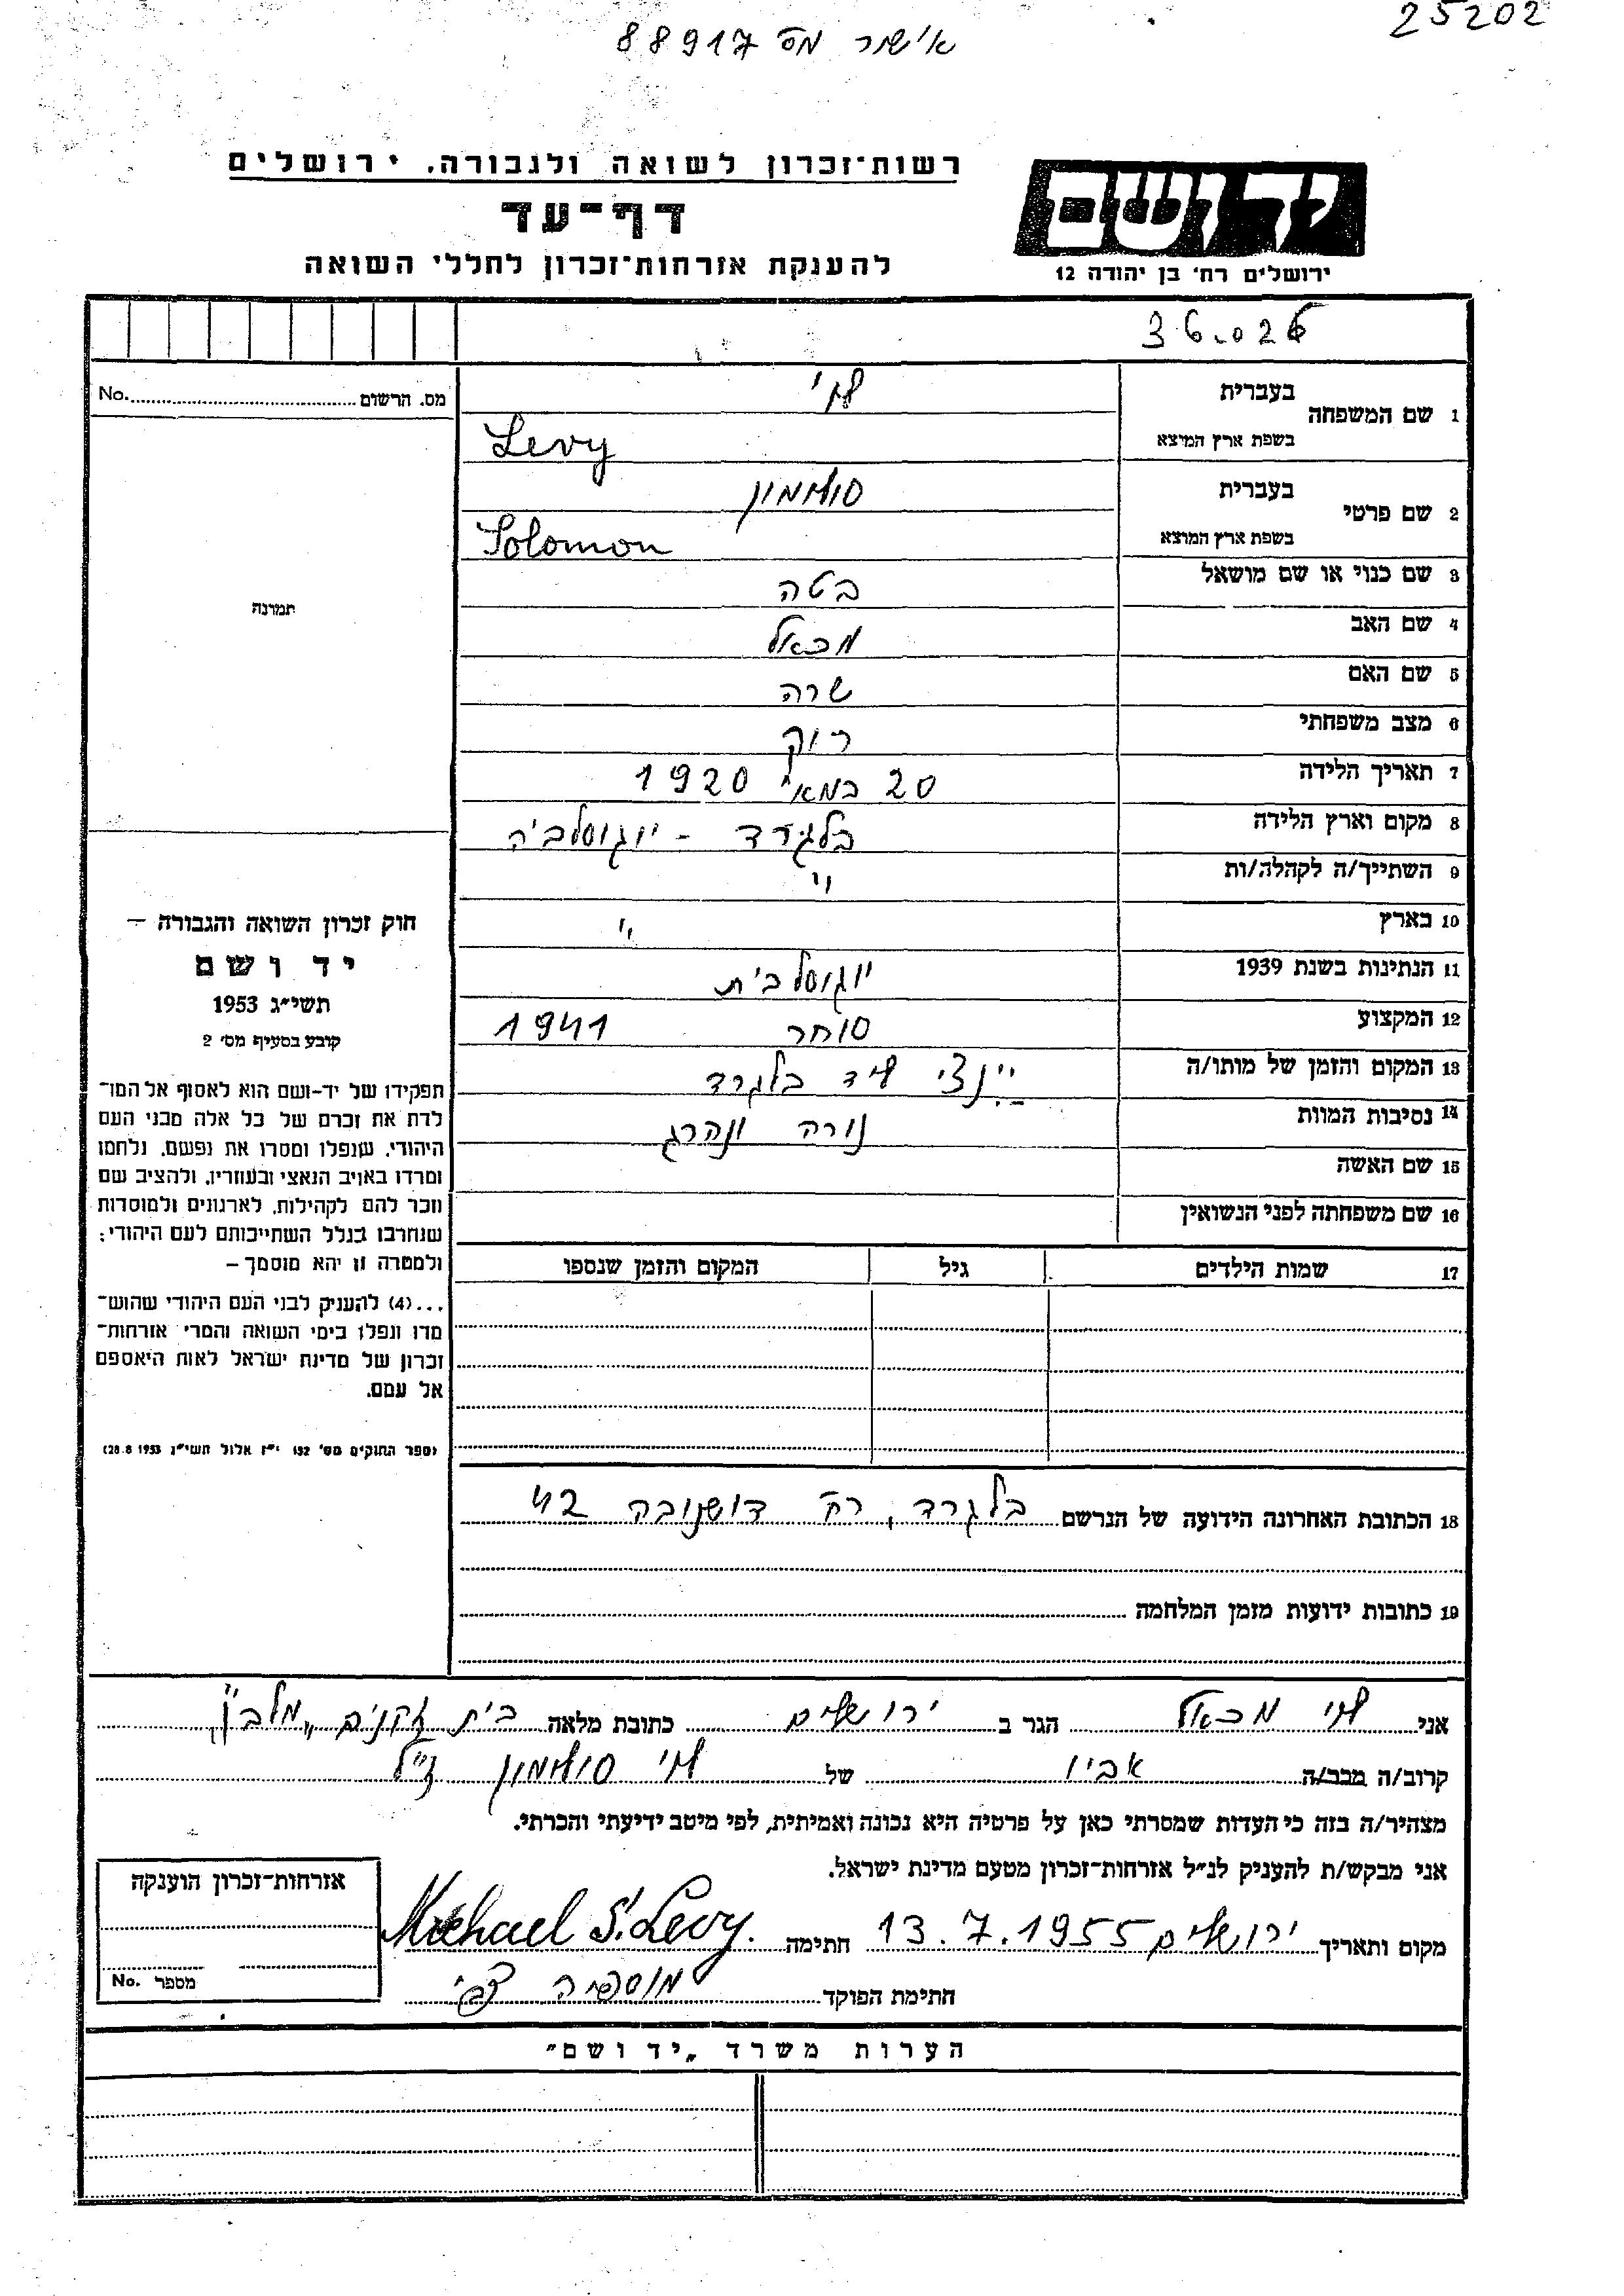 25202
אישור מס 88917
יד ושם
רשות־זכרון לשואה ולגבורה, ירושלים
דף־עד
להענקת אזרחות־זכרון לחללי השואה
ירושלים רח׳ בן יהודה 12
36.026
מס. הרשום No.
תמונה
1 שם המשפחה בעברית לוי
בשפת ארץ המוצא Levy
2 שם פרטי בעברית סולומון
בשפת ארץ המוצא Solomon
3 שם כנוי או שם מושאל בטה
4 שם האב מכאל
5 שם האם שרה
6 מצב משפחתי רווק
7 תאריך הלידה 20 במאי 1920
8 מקום וארץ הלידה בלגרד - יוגוסלביה
9 השתייך/ה לקהלה/ות "
10 בארץ "
11 הנתינות בשנת 1939 יוגוסלבית
12 המקצוע סוחר 1941
13 המקום והזמן של מותו/ה יינצי ליד בלגרד
14 נסיבות המוות נורה ונהרג
15 שם האשה
16 שם משפחתה לפני הנשואין
17 שמות הילדים גיל המקום והזמן שנספו
חוק זכרון השואה והגבורה –
יד ושם
תשי״ג 1953
קובע בסעיף מס׳ 2
תפקידו של יד-ושם הוא לאסוף אל המו־
לדת את זכרם של כל אלה מבני העם
היהודי, שנפלו ומסרו את נפשם, נלחמו
ומרדו באויב הנאצי ובעוזריו, ולהציב שם
וזכר להם לקהילות, לארגונים ולמוסדות
שנחרבו בגלל השתייכותם לעם היהודי;
ולמטרה זו יהא מוסמך –
...(4) להעניק לבני העם היהודי שהוש־
מדו ונפלו בימי השואה והמרי אזרחות־
זכרון של מדינת ישראל לאות היאספם
אל עמם.
(ספר החוקים מס׳ 132 י״ז אלול תשי״ג 28.8.1953)
18 הכתובת האחרונה הידועה של הנרשם בלגרד, רח׳ דושנובה 42
19 כתובות ידועות מזמן המלחמה
אני לוי מכאל הגר ב ירושלים כתובת מלאה בית זקנים „מלבן"
קרוב/ה מכר/ה אביו של לוי סולומון ז"ל
מצהיר/ה בזה כי העדות שמסרתי כאן על פרטיה היא נכונה ואמיתית, לפי מיטב ידיעתי והכרתי.
אני מבקש/ת להעניק לנ״ל אזרחות־זכרון מטעם מדינת ישראל.
מקום ותאריך ירושלים 13.7.1955 חתימה Michael S. Levy.
חתימת הפוקד
אזרחות־זכרון הוענקה
מספר No.
הערות משרד „יד ושם״